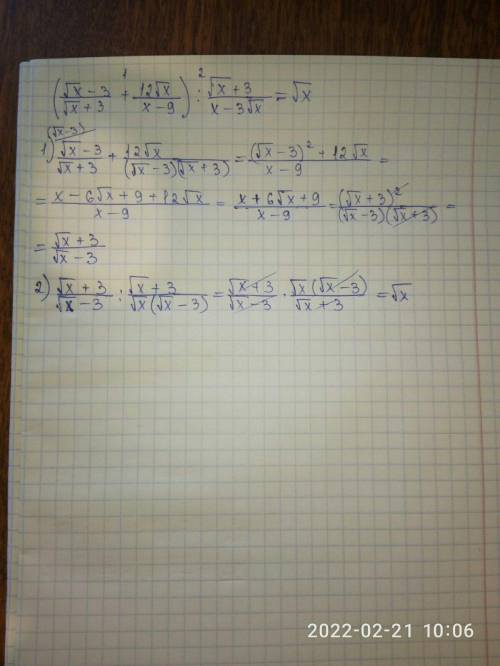 (√x − 3 / √x + 3 + 12√x / x − 9) : √x + 3 / x − 3√x = √x
1 2
(√x−3)
1) √x − 3 / √x + 3 + 12√x / (√x − 3)(√x + 3) = (√x − 3)² + 12√x / x − 9 =
= x − 6√x + 9 + 12√x / x − 9 = x + 6√x + 9 / x − 9 = (√x + 3)² / (√x − 3)(√x + 3) =
= √x + 3 / √x − 3
2) √x + 3 / √x − 3 : √x + 3 / √x(√x − 3) = √x + 3 / √x − 3 · √x(√x − 3) / √x + 3 = √x
2022-02-21 10:06